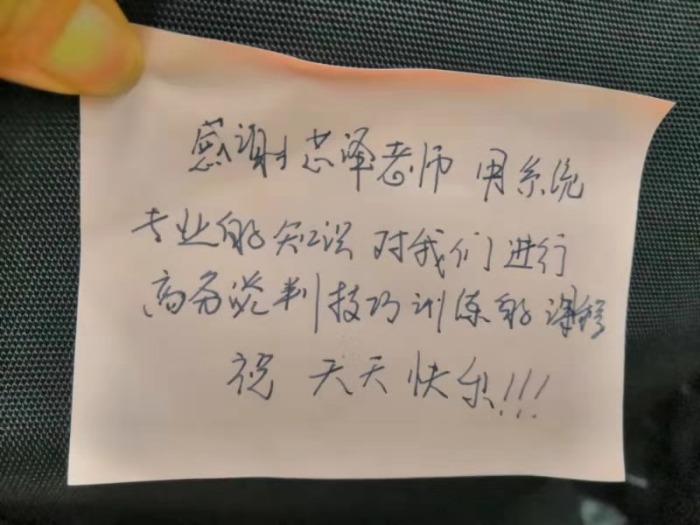 感谢志泽老师 用系统
专业的知识 对我们进行
商务谈判技巧训练的课程
祝 天天快乐!!!